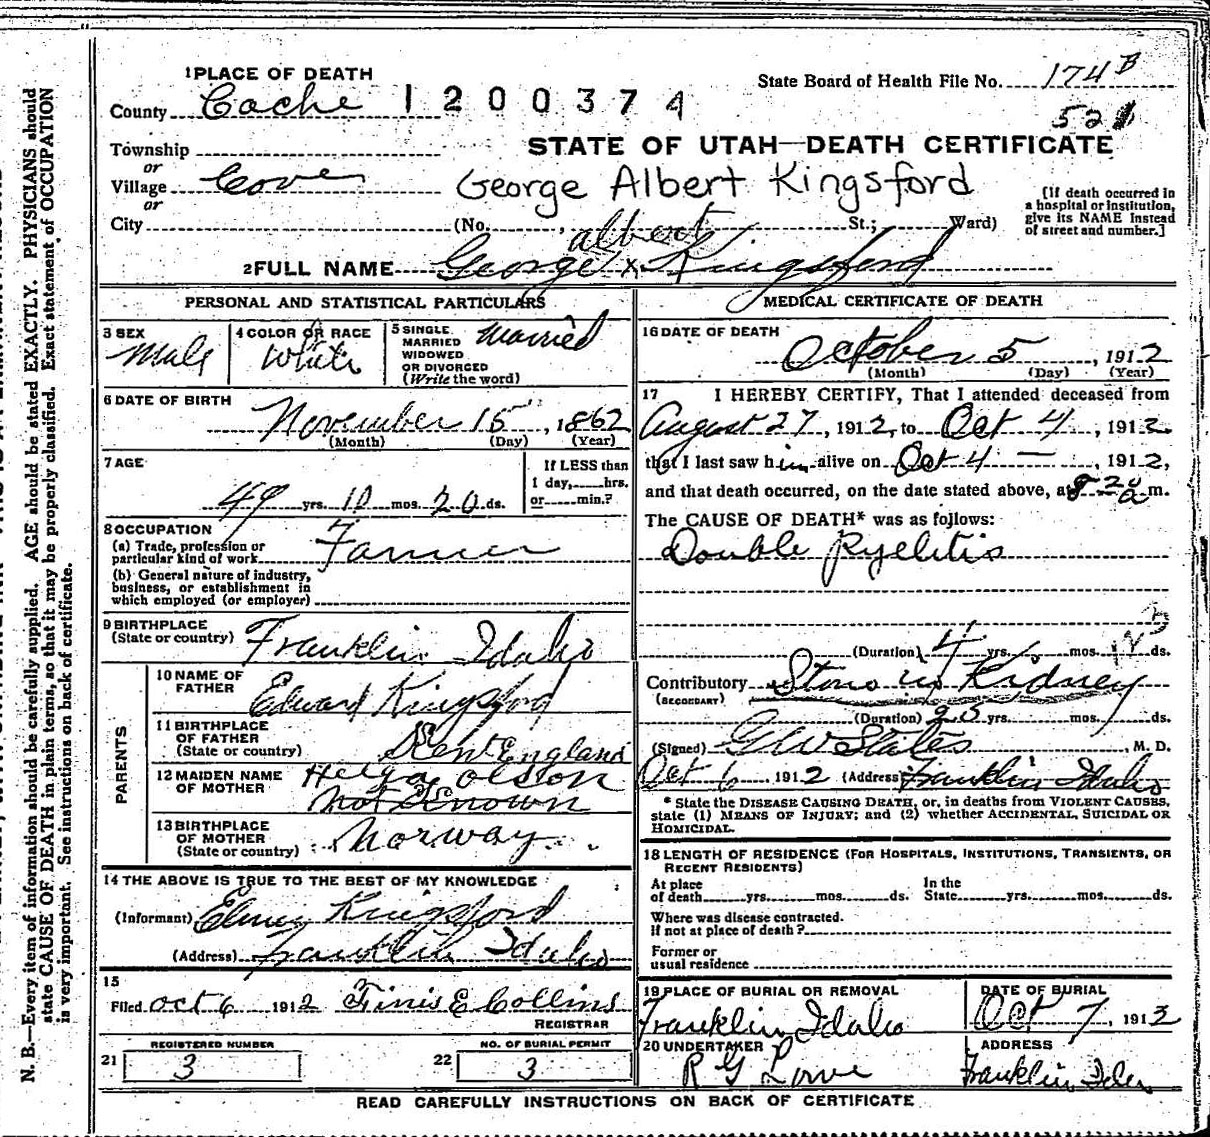 1 PLACE OF DEATH
State Board of Health File No. 174 B
County Cache 1200374
52
STATE OF UTAH—DEATH CERTIFICATE
Township
or
Village Cove
George Albert Kingsford
or
City (No. , St.; Ward)
[If death occurred in
a hospital or institution,
give its NAME instead
of street and number.]
albert
2 FULL NAME George x Kingsford
PERSONAL AND STATISTICAL PARTICULARS
3 SEX
Male
4 COLOR OR RACE
White
5 SINGLE
MARRIED
WIDOWED
OR DIVORCED
(Write the word)
Married
6 DATE OF BIRTH
November 15, 1862
(Month) (Day) (Year)
7 AGE
49 yrs. 10 mos. 20 ds.
If LESS than
1 day, hrs.
or min.?
8 OCCUPATION
(a) Trade, profession or
particular kind of work Farmer
(b) General nature of industry,
business, or establishment in
which employed (or employer)
9 BIRTHPLACE
(State or country) Franklin Idaho
PARENTS
10 NAME OF
FATHER Edward Kingsford
11 BIRTHPLACE
OF FATHER
(State or country) Kent England
12 MAIDEN NAME
OF MOTHER Helga Olston
Not Known
13 BIRTHPLACE
OF MOTHER
(State or country) Norway
14 THE ABOVE IS TRUE TO THE BEST OF MY KNOWLEDGE
(Informant) Kingsford
(Address) Franklin Idaho
15
Filed Oct 6 1912 Finis E Collins
REGISTRAR
REGISTERED NUMBER
21 3
NO. OF BURIAL PERMIT
22 3
MEDICAL CERTIFICATE OF DEATH
16 DATE OF DEATH
October 5, 1912
(Month) (Day) (Year)
17 I HEREBY CERTIFY, That I attended deceased from
August 27, 1912, to Oct 4, 1912
that I last saw him alive on Oct 4 —, 1912,
and that death occurred, on the date stated above, at 8 20 a m.
The CAUSE OF DEATH* was as follows:
Double Pyelitis
(Duration) 4 yrs. mos. ds.
Contributory Stone in Kidney
(SECONDARY)
(Duration) 25 yrs. mos. ds.
(Signed) G W States, M. D.
Oct 6 1912 (Address) Franklin Idaho
* State the DISEASE CAUSING DEATH, or, in deaths from VIOLENT CAUSES,
state (1) MEANS OF INJURY; and (2) whether ACCIDENTAL, SUICIDAL OR
HOMICIDAL.
18 LENGTH OF RESIDENCE (FOR HOSPITALS, INSTITUTIONS, TRANSIENTS, OR
RECENT RESIDENTS)
At place
of death yrs. mos. ds.
In the
State yrs. mos. ds.
Where was disease contracted.
If not at place of death?
Former or
usual residence
19 PLACE OF BURIAL OR REMOVAL
Franklin Idaho
DATE OF BURIAL
Oct 7, 1912
20 UNDERTAKER
R G Lowe
ADDRESS
Franklin
READ CAREFULLY INSTRUCTIONS ON BACK OF CERTIFICATE
N. B.—Every item of information should be carefully supplied. AGE should be stated EXACTLY. PHYSICIANS should
state CAUSE OF DEATH in plain terms, so that it may be properly classified. Exact statement of OCCUPATION
is very important. See instructions on back of certificate.